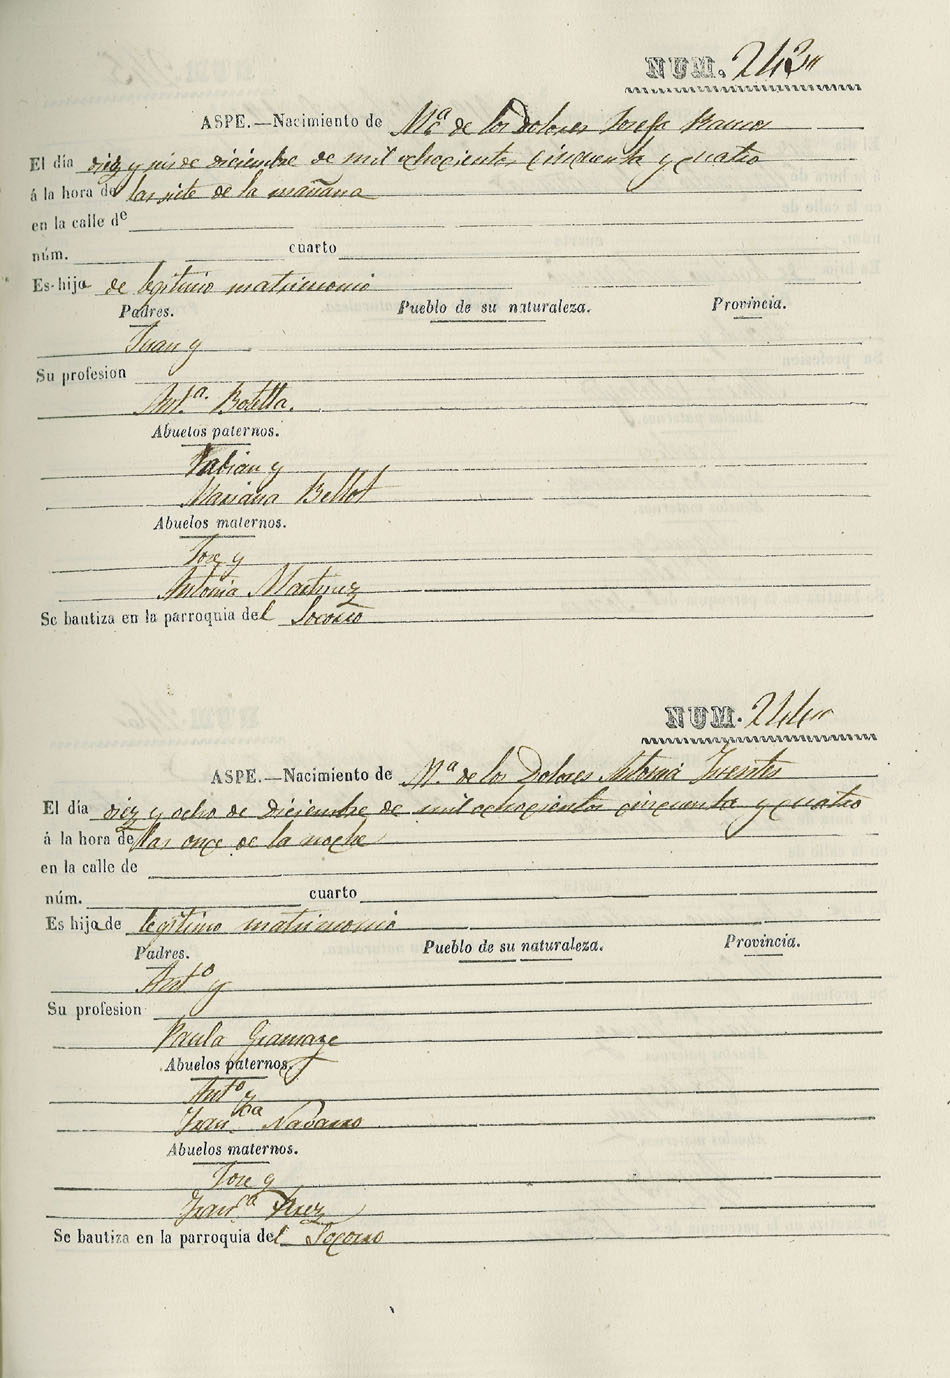 NUM. 243
ASPE.—Nacimiento de Mª de los Dolores Josefa Ramos
El día diez y seis de diciembre de mil ochocientos cinquenta y cuatro
á la hora de las siete de la mañana
en la calle de
núm. cuarto
Es hija de legitimo matrimonio
Padres. Pueblo de su naturaleza. Provincia.
Juan y
Su profesion
Antª. Botella.
Abuelos paternos.
Fabian y
Mariana Bellot
Abuelos maternos.
Jose y
Antonia Martinez
Se bautiza en la parroquia del Socorro
NUM. 244
ASPE.—Nacimiento de Mª de los Dolores Antonia Fuentes
El día diez y ocho de Diciembre de mil ochocientos cinquenta y cuatro
á la hora de las once de la noche
en la calle de
núm. cuarto
Es hija de legitimo matrimonio
Padres. Pueblo de su naturaleza. Provincia.
Antº y
Su profesion
Paula Gramage
Abuelos paternos.
Antº y
Franca Navarro
Abuelos maternos.
Jose y
Franª
Se bautiza en la parroquia del Socorro